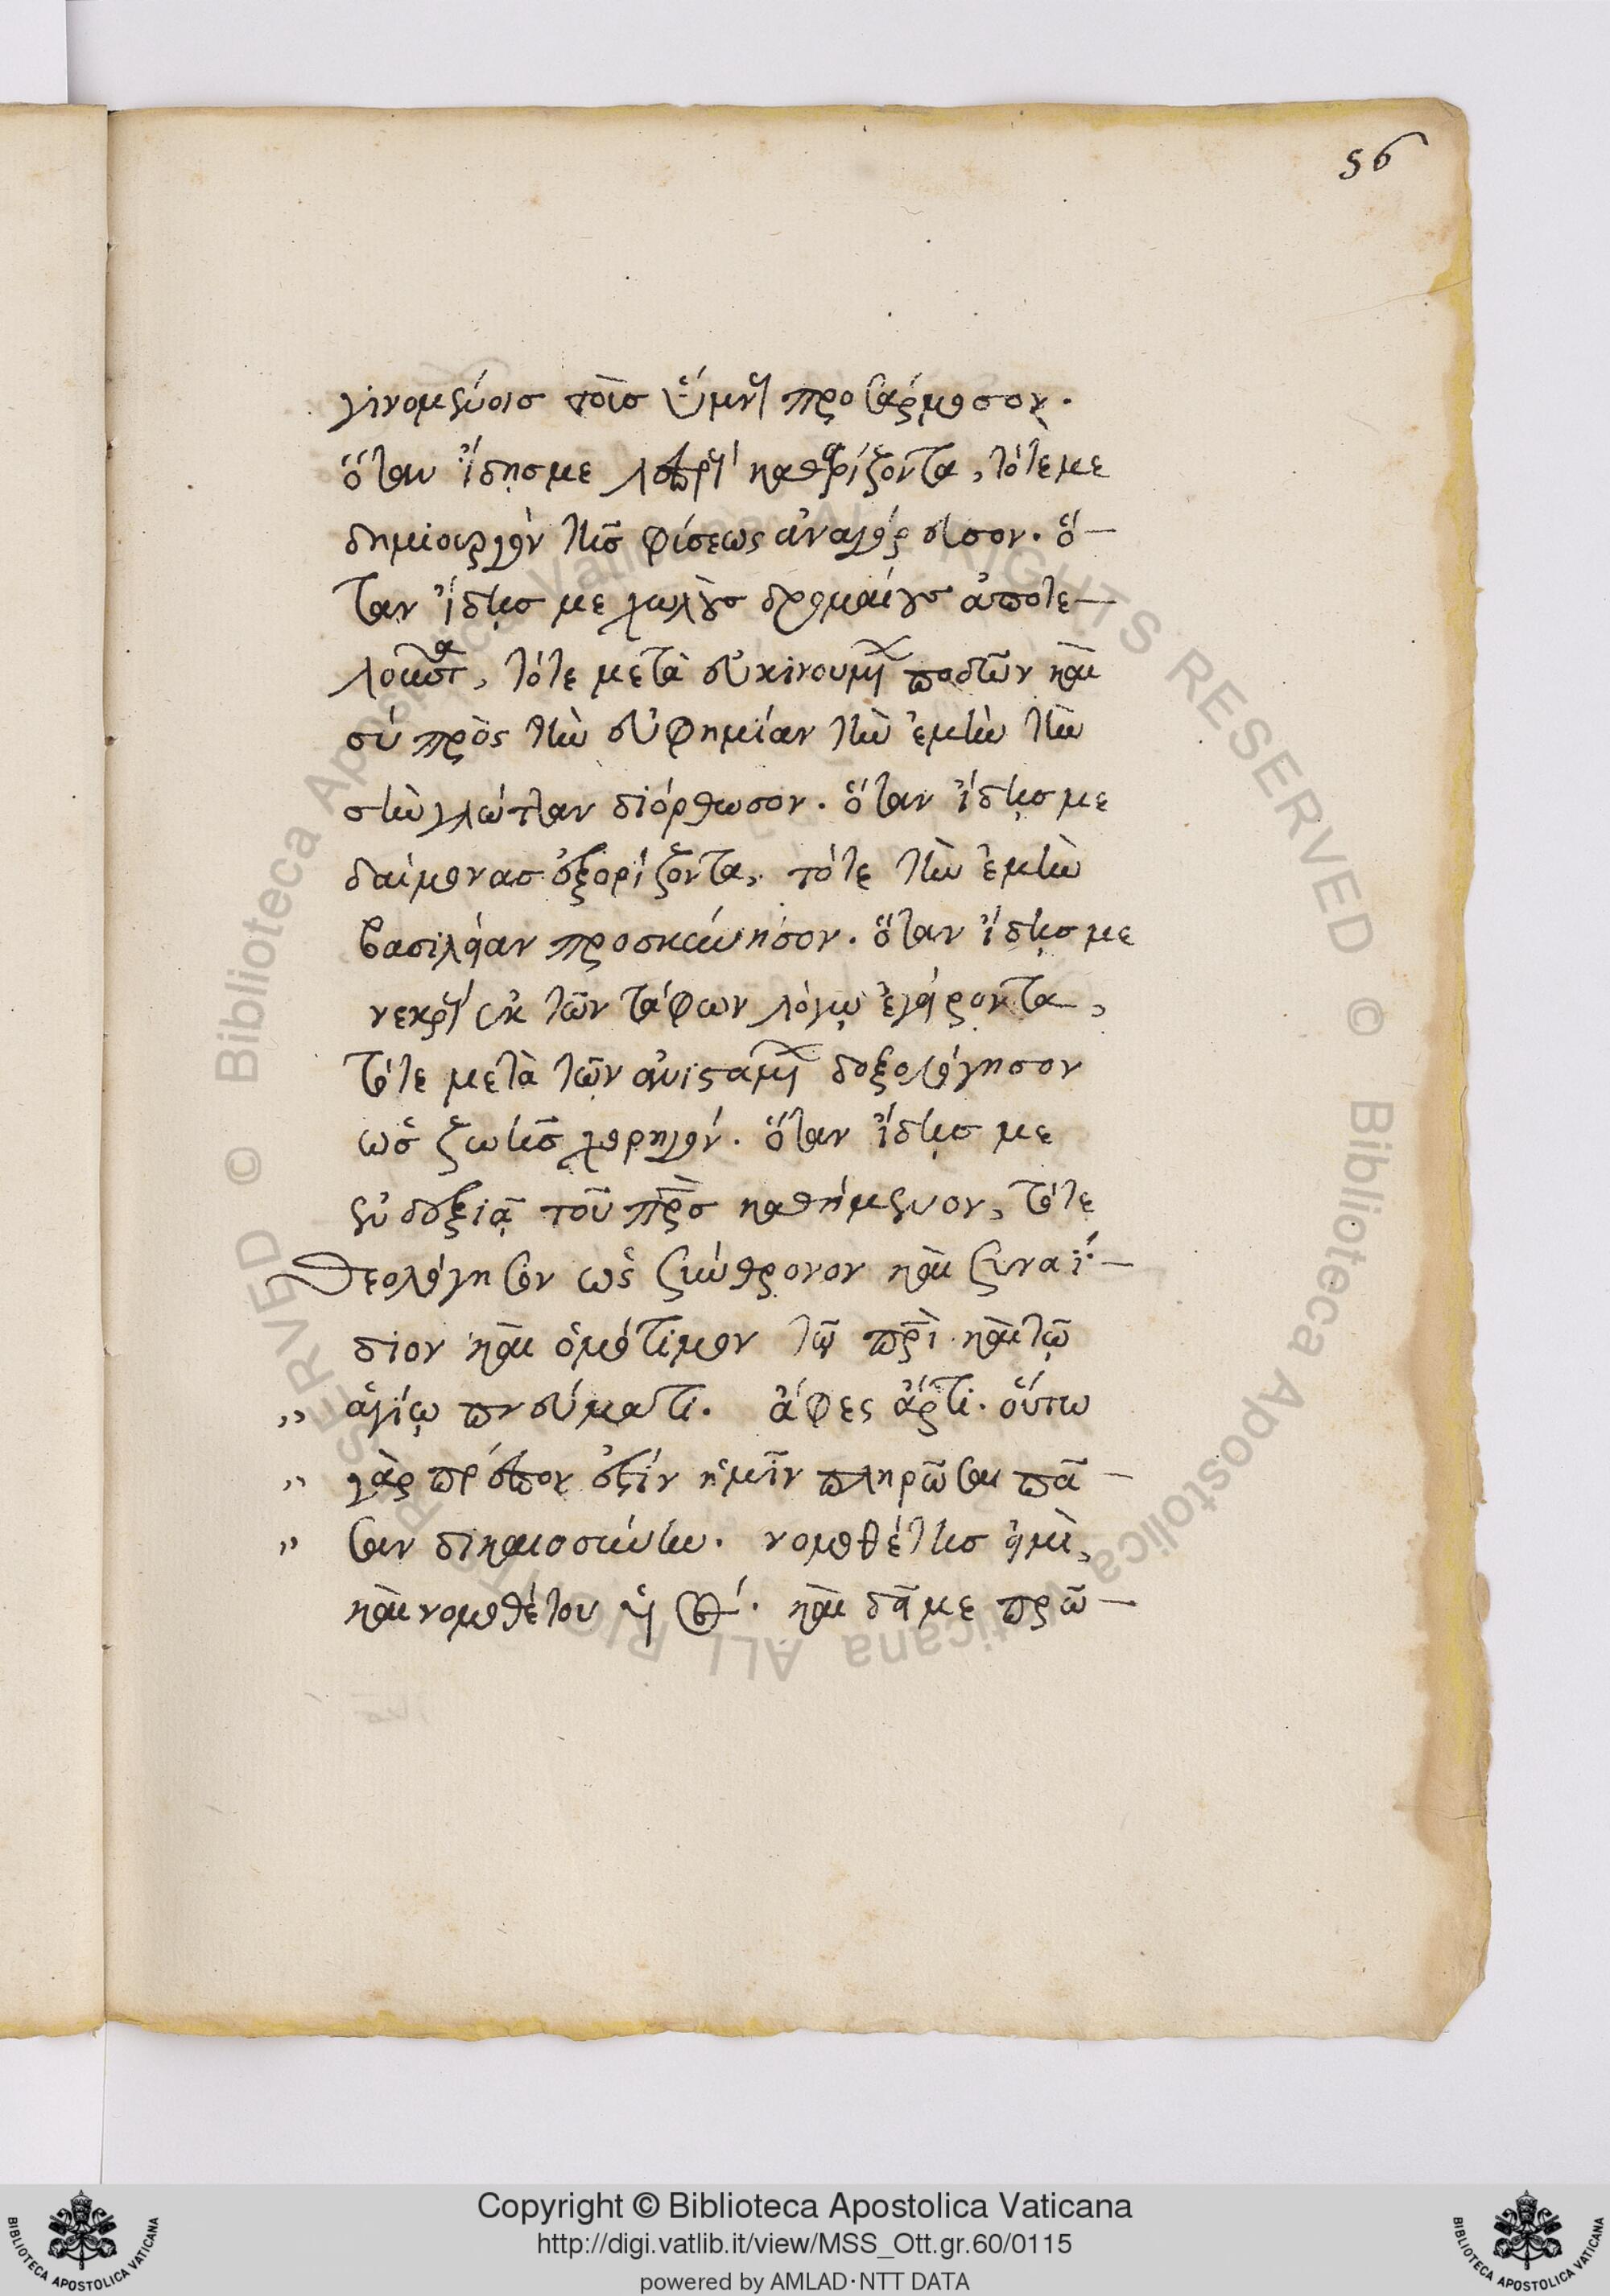 56
γινομένοις τοὺς ὕμνους προσάρμοσον.
ὅταν ἴδῃς με λεπροὺς καθαρίζοντα, τότε με
δημιουργὸν τῆς φύσεως ἀναγόρευσον. ὅ-
ταν ἴδῃς με χωλοὺς δρομαίους ἀποτε-
λοῦντα, τότε μετὰ εὐκινουμένων ποδῶν καὶ
σύ πρὸς τὴν εὐφημίαν τὴν ἐμὴν τὴν
σὴν γλῶτταν διόρθωσον. ὅταν ἴδῃς με
δαίμονας ἐξορίζοντα, τότε τὴν ἐμὴν
βασιλείαν προσκύνησον. ὅταν ἴδῃς με
νεκροὺς ἐκ τῶν τάφων λόγῳ ἐγείροντα,
τότε μετὰ τῶν ἀνισταμένων δοξολόγησον
ὡς ζωῆς χορηγόν. ὅταν ἴδῃς με
ἐν δεξιᾷ τοῦ πρς καθήμενον, τότε
θεολόγησον ὡς σύνθρονον καὶ συναΐ-
διον καὶ ὁμότιμον τῷ πρὶ καὶ τῷ
ἁγίῳ πνεύματι. ἄφες ἄρτι. οὕτω
γὰρ πρέπον ἐστὶν ἡμῖν πληρῶσαι πᾶ-
σαν δικαιοσύνην. νομοθέτης εἰμὶ,
καὶ νομοθέτου υἱός. καὶ δεῖ με πρῶ-
Copyright © Biblioteca Apostolica Vaticana
http://digi.vatlib.it/view/MSS_Ott.gr.60/0115
powered by AMLAD·NTT DATA